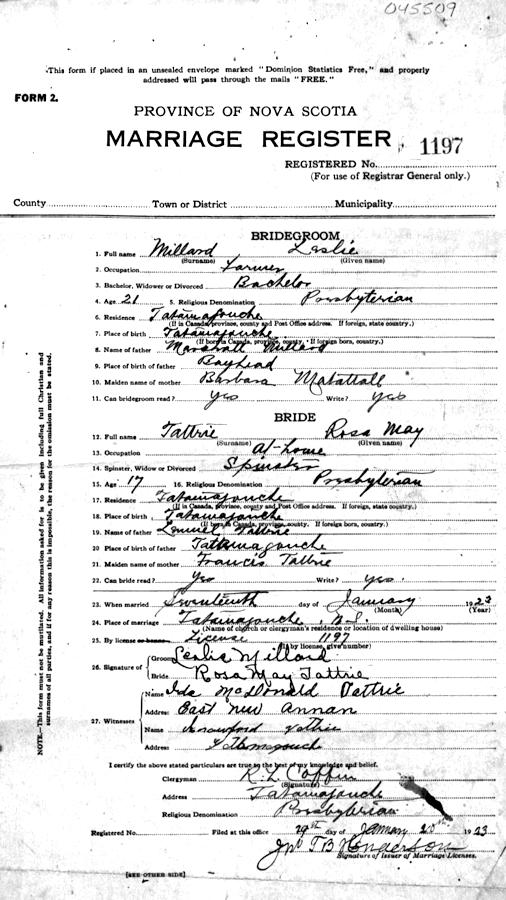 045509
This form if placed in an unsealed envelope marked "Dominion Statistics Free," and properly
addressed will pass through the mails "FREE."
FORM 2.
PROVINCE OF NOVA SCOTIA
MARRIAGE REGISTER
1197
REGISTERED No.
(For use of Registrar General only.)
County Town or District Municipality
BRIDEGROOM
1. Full name Millard Leslie
(Surname) (Given name)
2. Occupation Farmer
3. Bachelor, Widower or Divorced Bachelor
4. Age 21 5. Religious Denomination Presbyterian
6. Residence Tatamagouche
(If in Canada, province, county and Post Office address. If foreign, state country.)
7. Place of birth Tatamagouche
(If born in Canada, province, county. If foreign born, country.)
8. Name of father Marshall Millard
9. Place of birth of father Bayhead
10. Maiden name of mother Barbara Matattall
11. Can bridegroom read? Yes Write? Yes
BRIDE
12. Full name Tattrie Rosa May
(Surname) (Given name)
13. Occupation at-home
14. Spinster, Widow or Divorced Spinster
15. Age 17 16. Religious Denomination Presbyterian
17. Residence Tatamagouche
(If in Canada, province, county and Post Office address. If foreign, state country.)
18. Place of birth Tatamagouche
(If born in Canada, province, county. If foreign born, country.)
19. Name of father Lemuel Tattrie
20. Place of birth of father Tatamagouche
21. Maiden name of mother Francis Tattrie
22. Can bride read? Yes Write? Yes.
23. When married Seventeenth day of January 1923
(Month) (Year)
24. Place of marriage Tatamagouche N.S.
(Name of church or clergyman's residence or location of dwelling house)
25. By license or banns License 1197
(If by license, give number)
26. Signature of
Groom Leslie Millard
Bride Rosa May Tattrie
27. Witnesses
Name Ida McDonald Tattrie
Address East New Annan
Name Tattrie
Address
I certify the above stated particulars are true to the best of my knowledge and belief.
Clergyman R. L. Coffin
(Signature)
Address Tatamagouche
Religious Denomination Presbyterian
Registered No. Filed at this office day of January 1923
Jno T B Henderson
Signature of Issuer of Marriage Licenses.
[SEE OTHER SIDE]
NOTE—This form must not be mutilated. All information asked for is to be given including full Christian and
surnames of all parties, and if for any reason this is impossible, the reason for the omission must be stated.